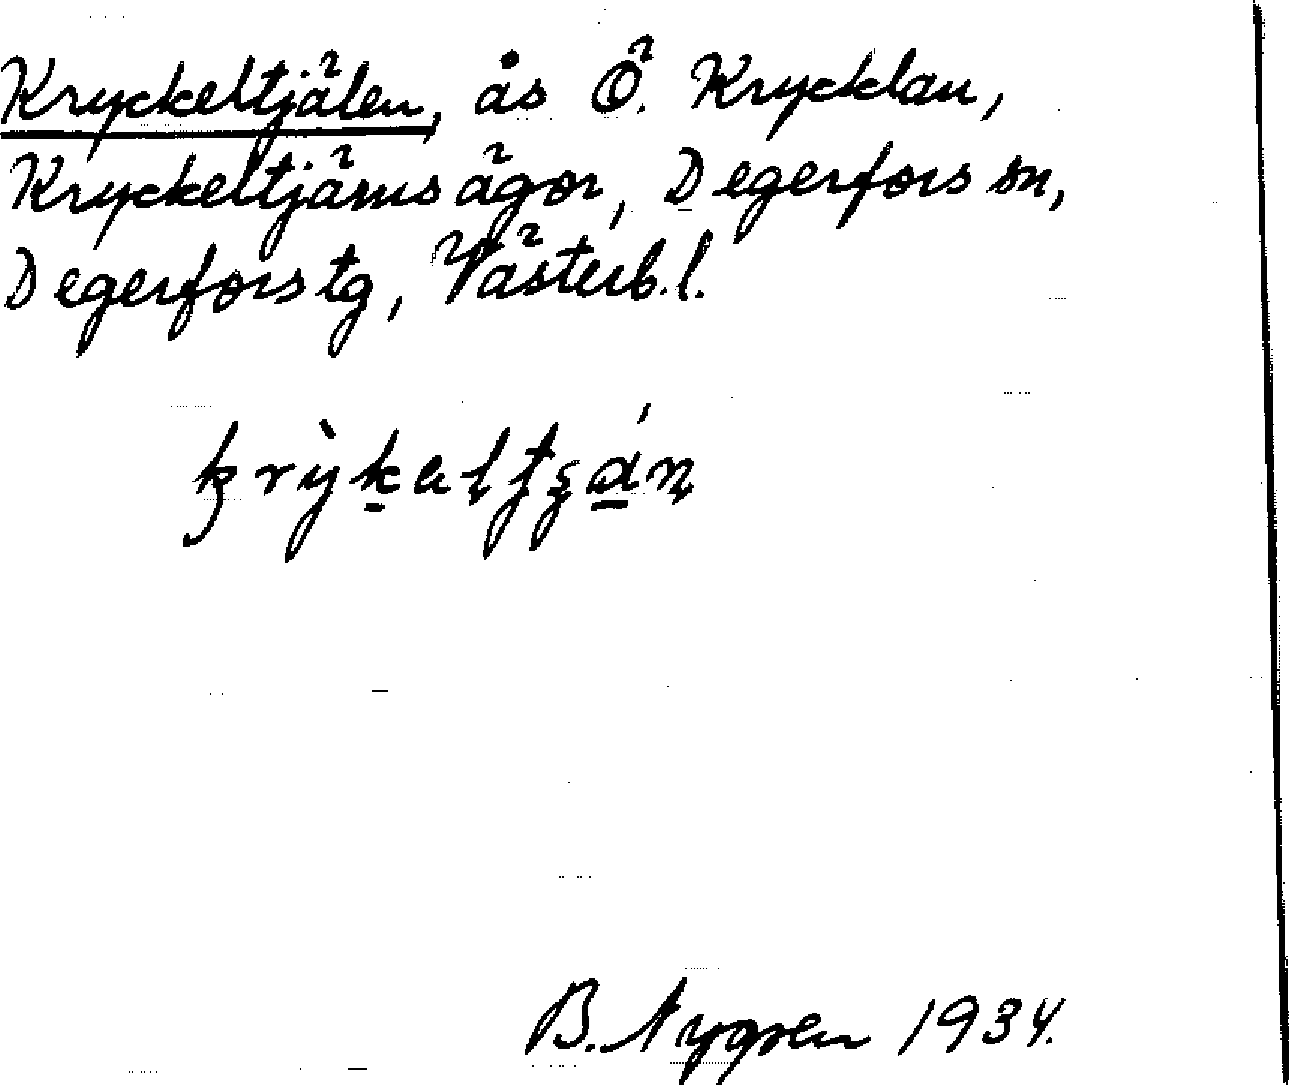 Kryckeltjälen, ås Ö. Krycklan,
Kryckeltjärns ägor, Degerfors sn,
Degerfors tg, Västerb. l.
B. Nygren 1934.